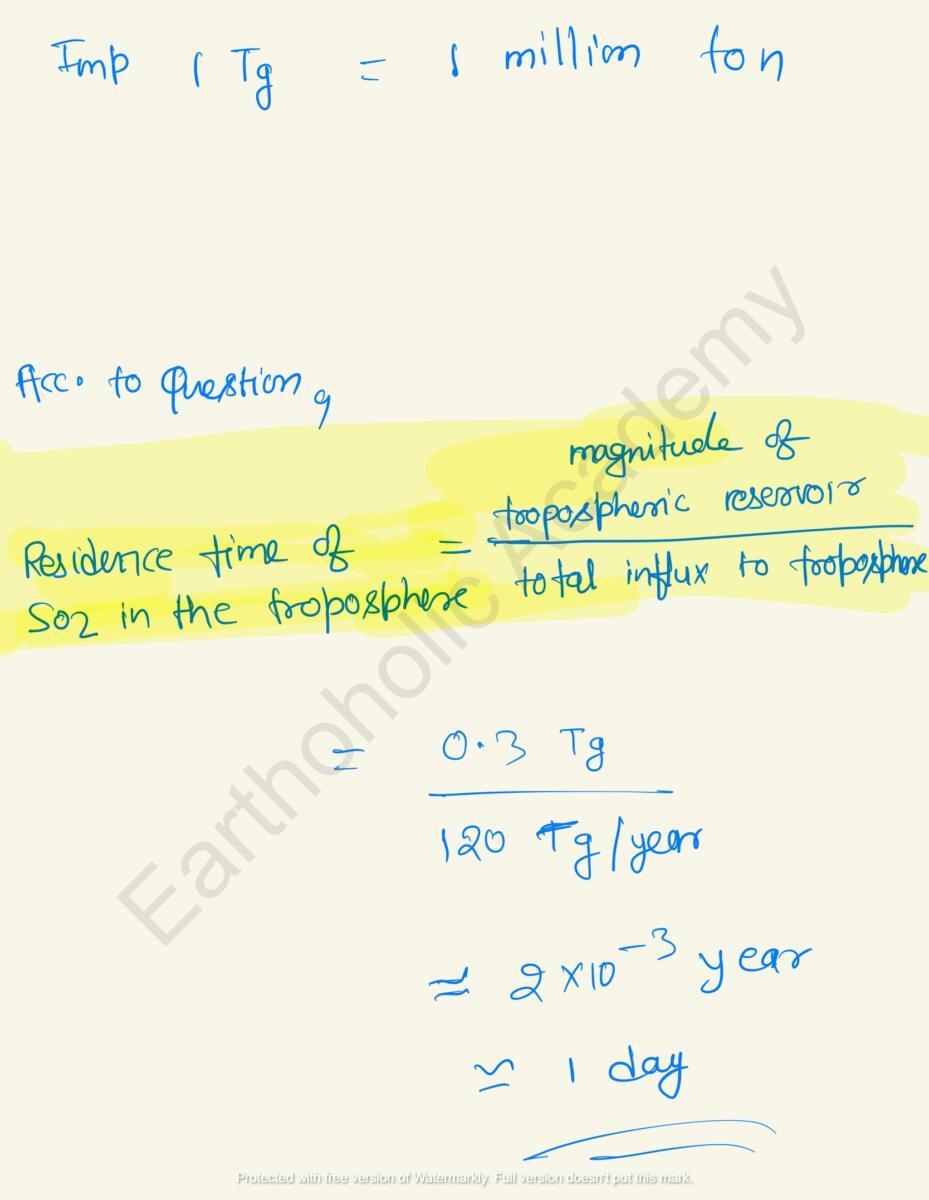 Imp 1 Tg = 1 million ton
Acc. to Question,
magnitude of
tropospheric reservoir
Residence time of =
total influx to troposphere
SO2 in the troposphere
= 0.3 Tg
120 Tg/year
≈ 2×10⁻³ year
≃ 1 day
Earthoholic Academy
Protected with free version of Watermarkly. Full version doesn't put this mark.